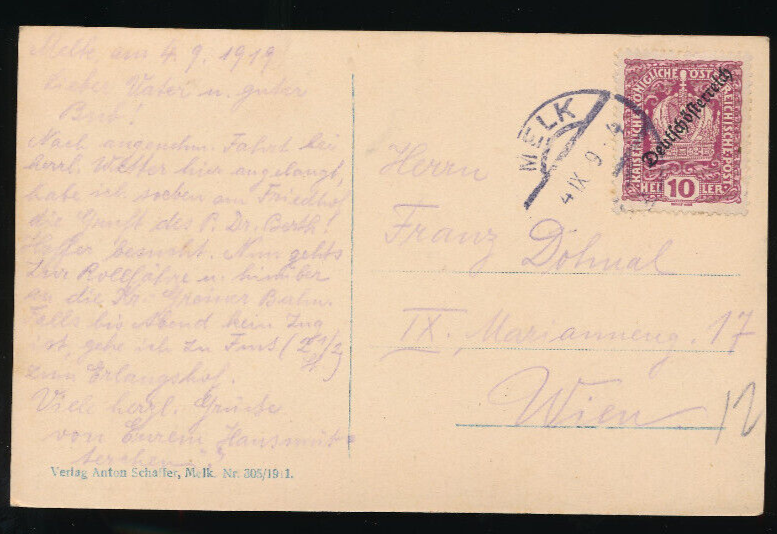 Melk, am 4. 9. 1919
Lieber Vater u. guter
Nach angenehm. Fahrt bei
herrl. Wetter hier angelangt,
habe ich soeben am Friedhof
die Gruft des P. Dr. Berth.
besucht. Nun gehts
zur Rollfähre u. hinüber
an die
Falls bis Abend kein Zug
ist, gehe ich zu Fuß (2 1/2
zum Erlangshof.
Viele herzl. Grüße
von Eurem
Verlag Anton Schaffer, Melk. Nr. 305/1911.
MELK
4 IX 9
KAISERLICHE KÖNIGLICHE ÖSTERREICHISCHE POST
Deutschösterreich
HELLER
10
Herrn
Franz Dolmal
IX. Marianneng. 17
Wien
12